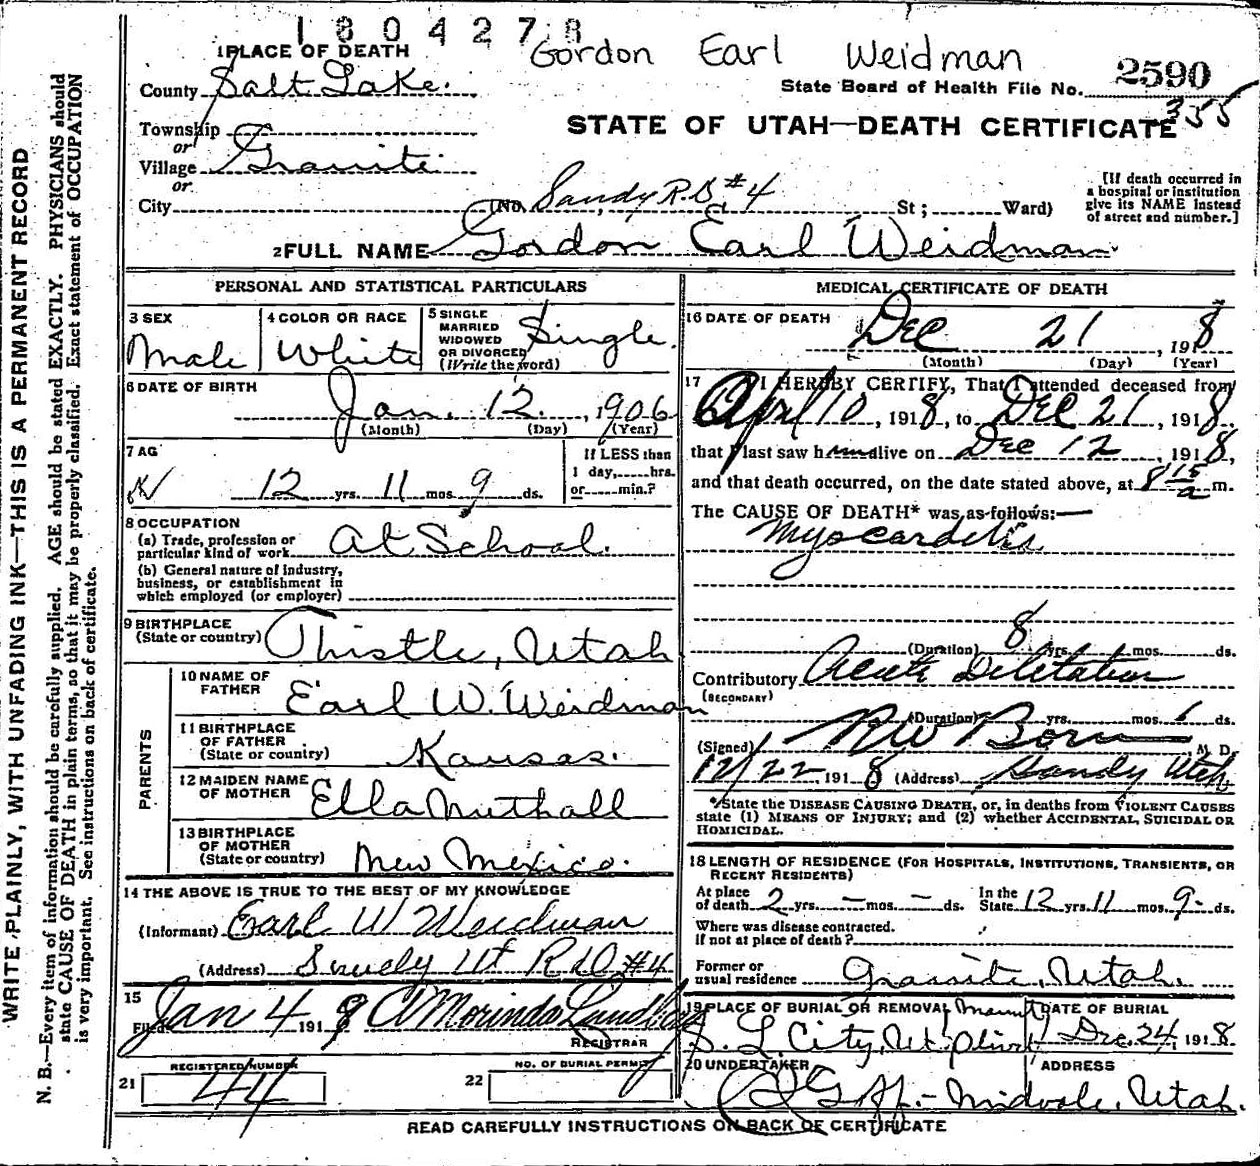 1804278
Gordon Earl Weidman
1 PLACE OF DEATH
County Salt Lake.
State Board of Health File No. 2590
355
STATE OF UTAH—DEATH CERTIFICATE
Township
or
Village Granite.
or
City (No. Sandy R.D #4 St; Ward)
[If death occurred in a hospital or institution give its NAME instead of street and number.]
2 FULL NAME Gordon Earl Weidman.
PERSONAL AND STATISTICAL PARTICULARS
3 SEX Male
4 COLOR OR RACE White
5 SINGLE MARRIED WIDOWED OR DIVORCED (Write the word) Single.
6 DATE OF BIRTH
Jan. 12, 1906
(Month) (Day) (Year)
7 AG
12 yrs. 11 mos. 9 ds.
If LESS than 1 day, hrs. or min.?
8 OCCUPATION
(a) Trade, profession or particular kind of work At School.
(b) General nature of industry, business, or establishment in which employed (or employer)
9 BIRTHPLACE
(State or country) Thistle, Utah
PARENTS
10 NAME OF FATHER Earl W. Weidman
11 BIRTHPLACE OF FATHER (State or country) Kansas.
12 MAIDEN NAME OF MOTHER Ella Nuthall
13 BIRTHPLACE OF MOTHER (State or country) New Mexico.
14 THE ABOVE IS TRUE TO THE BEST OF MY KNOWLEDGE
(Informant) Earl W Weidman
(Address) Sandy Ut R D #4
15
Filed Jan 4 1919 Morinda
REGISTRAR
REGISTERED NUMBER
21 44
NO. OF BURIAL PERMIT
22
MEDICAL CERTIFICATE OF DEATH
16 DATE OF DEATH
Dec 21, 1918
(Month) (Day) (Year)
17 I HEREBY CERTIFY, That I attended deceased from
April 10, 1918, to Dec 21, 1918,
that I last saw him alive on Dec 12, 1918,
and that death occurred, on the date stated above, at 8 15 a m.
The CAUSE OF DEATH* was as follows:—
Myocarditis
(Duration) 8 yrs. mos. ds.
Contributory Acute Diletation
(SECONDARY)
(Duration) yrs. mos. ds.
(Signed) R W Born M D.
12/22, 1918 (Address) Sandy Utah
*State the DISEASE CAUSING DEATH, or, in deaths from VIOLENT CAUSES
state (1) MEANS OF INJURY; and (2) whether ACCIDENTAL, SUICIDAL OR
HOMICIDAL.
18 LENGTH OF RESIDENCE (FOR HOSPITALS, INSTITUTIONS, TRANSIENTS, OR
RECENT RESIDENTS)
At place of death 2 yrs. — mos. — ds. In the State 12 yrs. 11 mos. 9 ds.
Where was disease contracted.
if not at place of death?
Former or usual residence Granite, Utah.
19 PLACE OF BURIAL OR REMOVAL Mount
S. L. City, Ut. Olivet
DATE OF BURIAL
Dec. 24, 1918.
20 UNDERTAKER
ADDRESS
Goff - Midvale, Utah.
READ CAREFULLY INSTRUCTIONS ON BACK OF CERTIFICATE
WRITE PLAINLY, WITH UNFADING INK—THIS IS A PERMANENT RECORD
N. B.—Every item of information should be carefully supplied. AGE should be stated EXACTLY. PHYSICIANS should
state CAUSE OF DEATH in plain terms, so that it may be properly classified. Exact statement of OCCUPATION
is very important. See instructions on back of certificate.